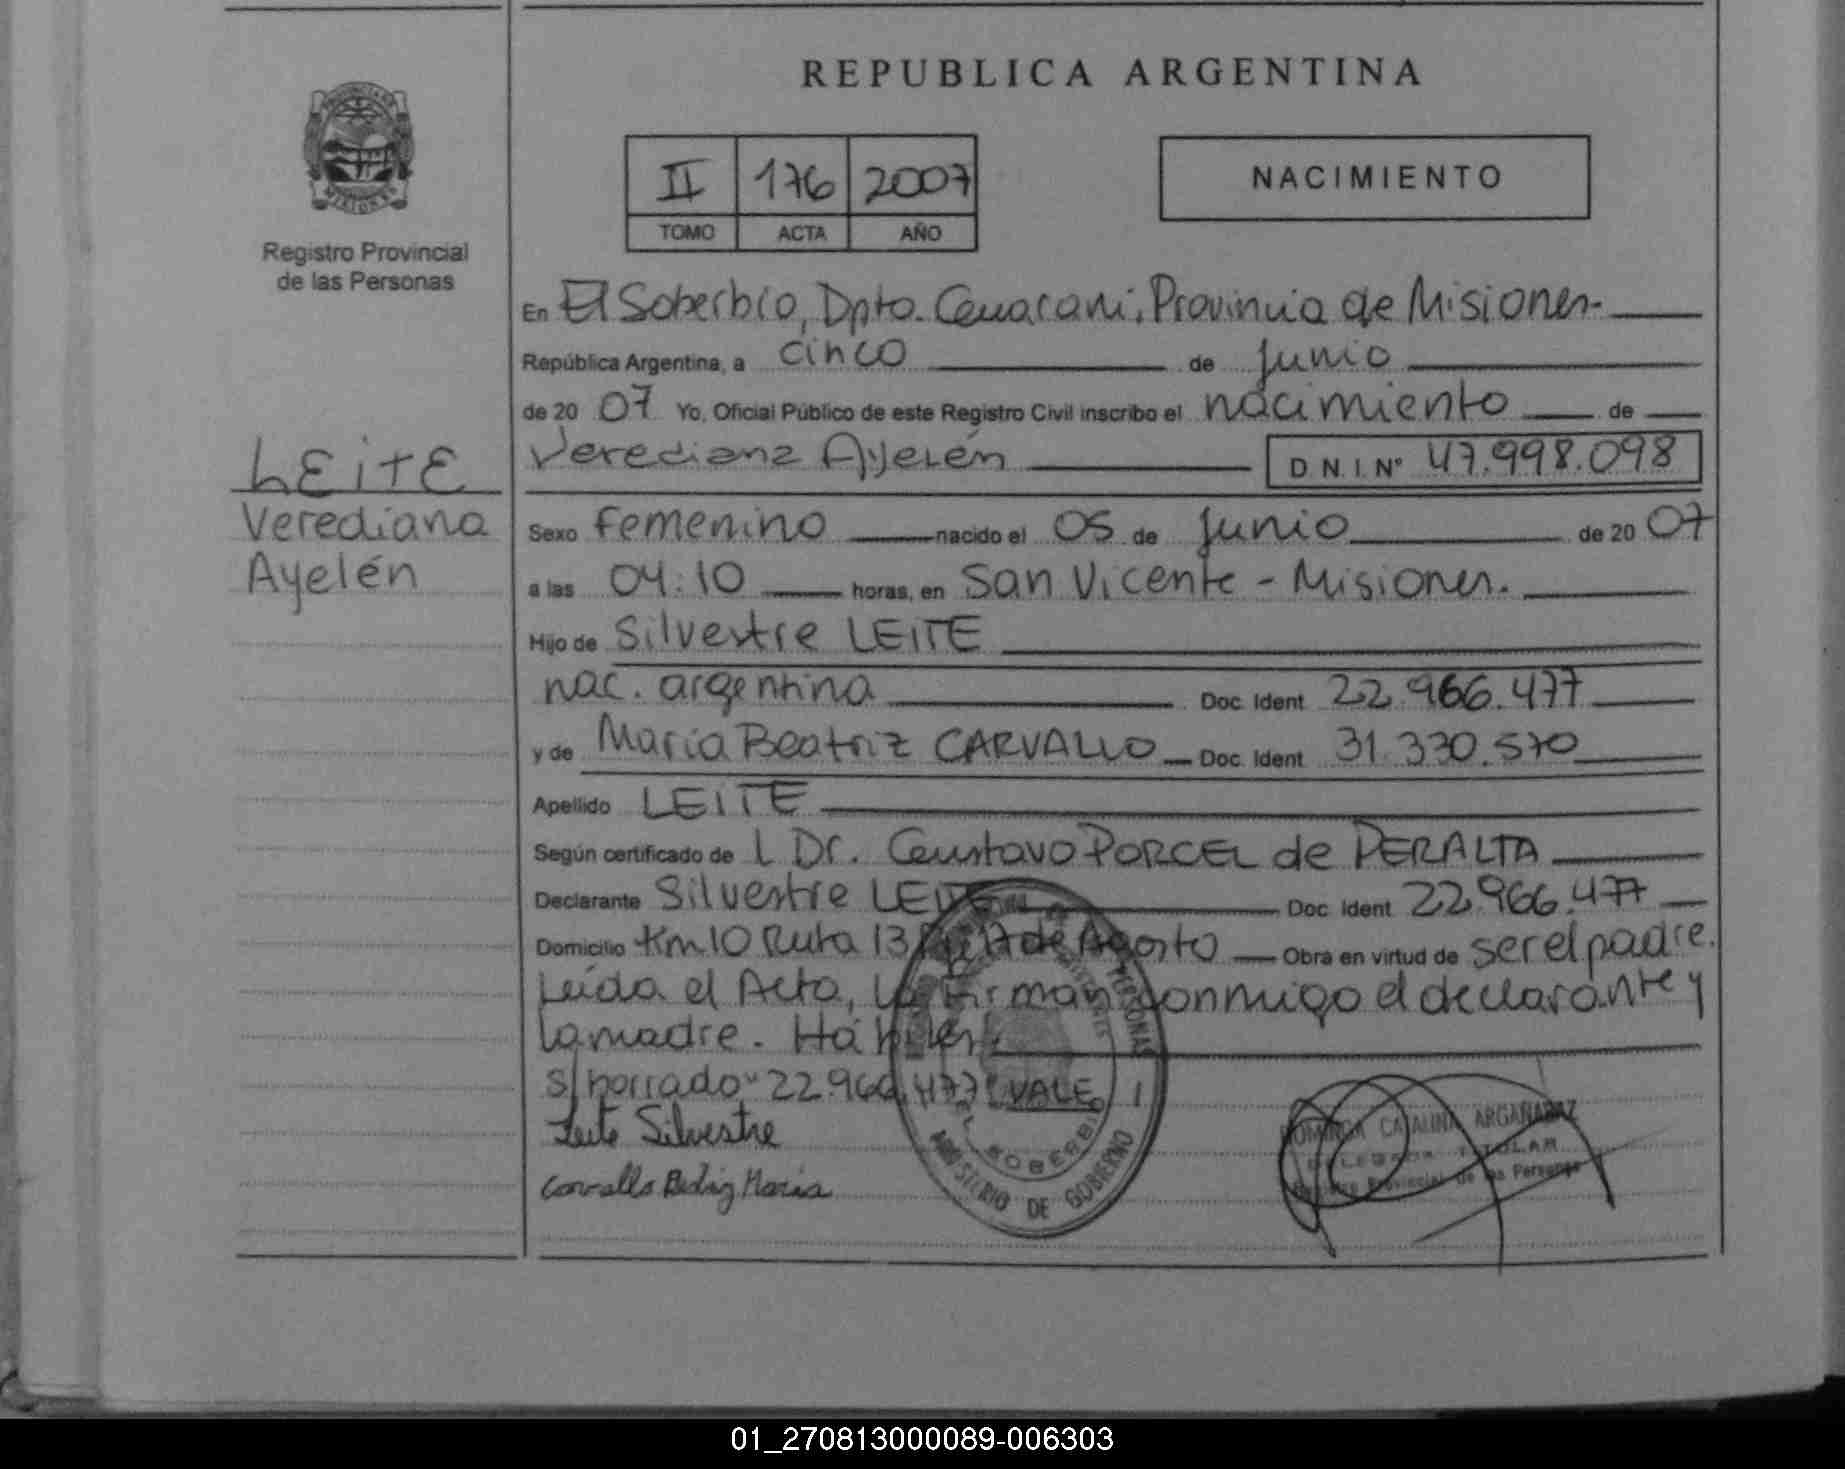 REPUBLICA ARGENTINA
PROVINCIA DE
MISIONES
Registro Provincial
de las Personas
II 176 2007
TOMO ACTA AÑO
NACIMIENTO
En El Soberbio, Dpto. Guaraní, Provincia de Misiones.
República Argentina, a cinco de junio
de 2007 Yo, Oficial Público de este Registro Civil inscribo el nacimiento de
Verediana Ayelén D.N.I. Nº 47.998.098
LEITE
Verediana
Ayelén
Sexo femenino nacido el 05 de junio de 2007
a las 04:10 horas, en San Vicente - Misiones.
Hijo de Silvestre LEITE
nac. argentina Doc. Ident. 22.966.477
y de María Beatriz CARVALLO Doc. Ident. 31.330.570
Apellido LEITE
Según certificado de l Dr. Gustavo PORCEL de PERALTA
Declarante Silvestre LEITE Doc. Ident. 22.966.477
Domicilio Km 10 Ruta 13 17 de Agosto Obra en virtud de ser el padre.
Leída el Acta, la firman conmigo el declarante y
la madre. Hábiles.
s/borrado "22.966.477" VALE
Leite Silvestre
Carvallo Beatriz Maria
PERSONAS
EL SOBERBIO
MINISTERIO DE GOBIERNO
DOMINGA CATALINA ARGAÑARAZ
DELEGADA TITULAR
Registro Provincial de las Personas
01_270813000089-006303